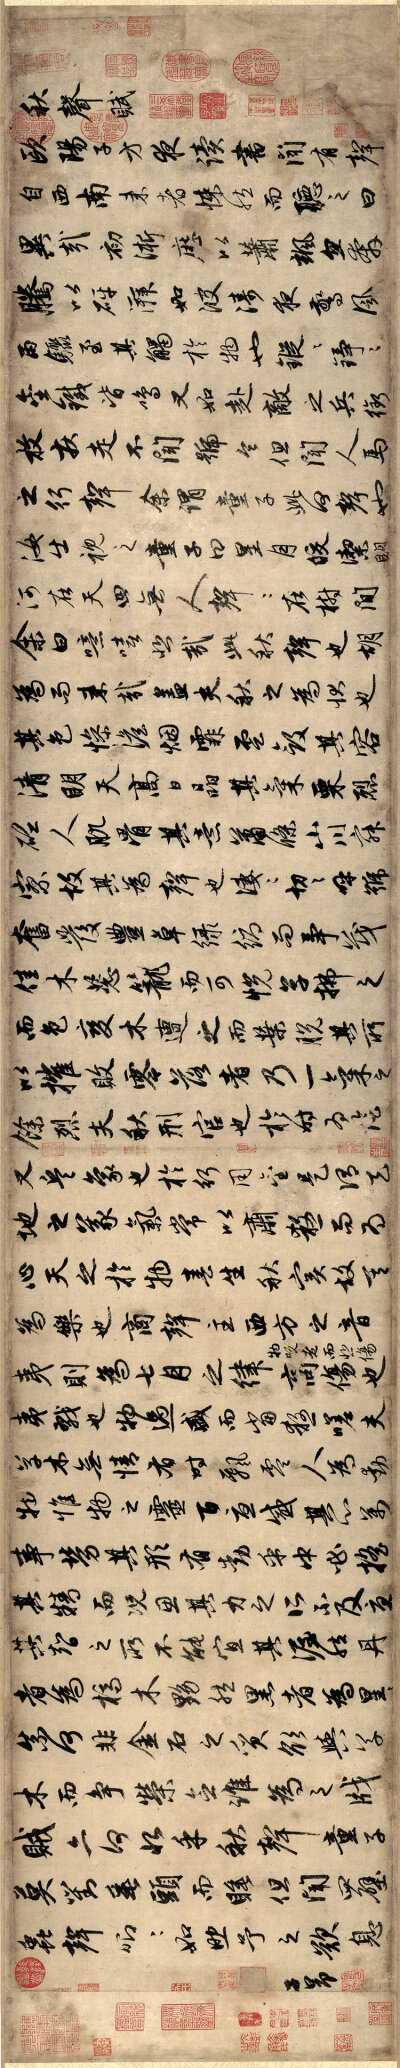 秋聲賦
歐陽子方夜讀書聞有聲
自西南來者悚然而聽之曰
異哉初淅瀝以蕭颯忽奔
騰以砰湃如波濤夜驚風
雨驟至其觸於物也鏦〻錚〻
金鐵皆鳴又如赴敵之兵銜
枚疾走不聞號令但聞人馬
之行聲余謂童子此何聲也
汝出視之童子曰星月皎潔明
河在天四無人聲〻在樹間
余曰噫嘻悲哉此秋聲也胡
為而來哉蓋夫秋之為狀也
其色慘淡烟霏雲斂其容
清明天高日晶其氣栗烈
砭人肌骨其意蕭條山川寂
寥故其為聲也淒〻切〻呼號
奮發豐草綠縟而爭茂
佳木葱蘢而可悅草拂之
而色變木遭之而葉脫其所
以摧敗零落者乃一氣之
餘烈夫秋刑官也於時為陰
又兵象也於行用金是謂天
地之義氣常以肅殺而為
心天之於物春生秋實故其
為樂也商聲主西方之音
夷則為七月之律商傷也
物既老而悲傷
夷戮也物過盛而當殺嗟夫
草木無情有時飄零人為動
物惟物之靈百憂感其心萬
事勞其形有動乎中必搖
其精而況思其力之所不及憂
其智之所不能宜其渥然丹
者為槁木黟然黑者為星〻
奈何非金石之質欲與草
木而爭榮念誰為之戕
賊亦何恨乎秋聲童子
莫對垂頭而睡但聞四壁
蟲聲唧〻如助予之歎息
子昂